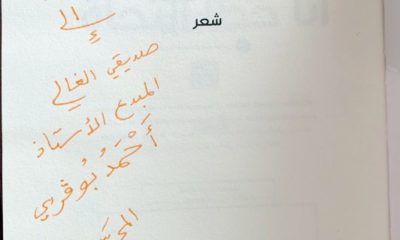 شعر
إلى
صديقي الغالي
المبدع الأستاذ
أَحْمَدُ بُوڤربي